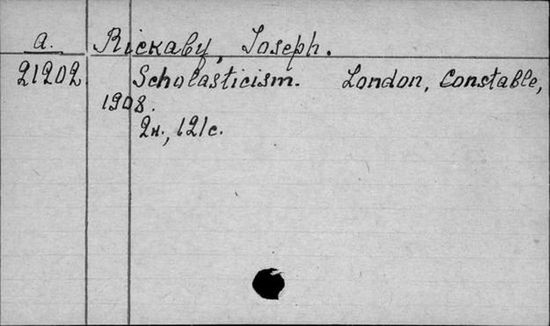 a. Rickaby, Joseph.
21202 Scholasticism. London, Constable,
1908.
2н., 121с.